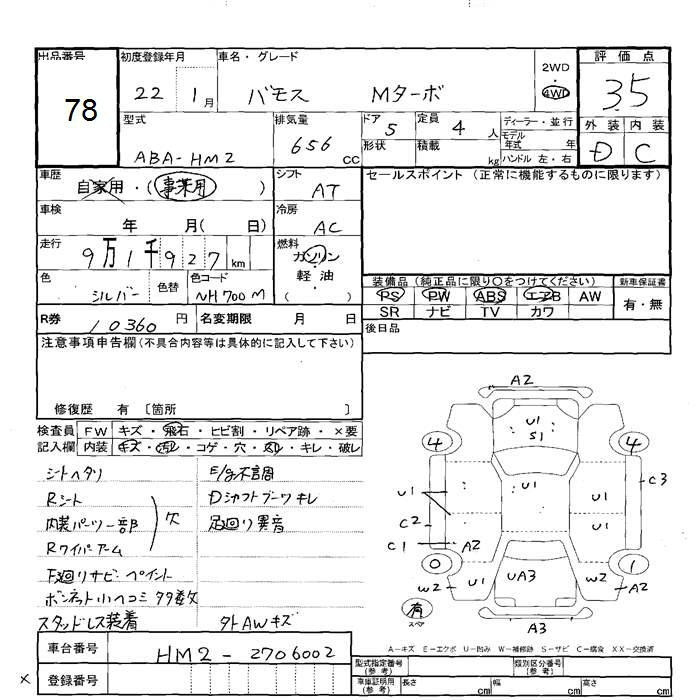 出品番号
78
初度登録年月
22 1月
車名・グレード
バモス Mターボ
2WD
・
4WD
評価点
3.5
外装 内装
D C
型式
ABA-HM2
排気量
656 CC
ドア 5
形状
定員 4 人
積載 kg
ディーラー・並行
モデル年式 年
ハンドル 左・右
車歴
自家用・(事業用)
シフト
AT
セールスポイント (正常に機能するものに限ります)
車検
年 月( 日)
冷房
AC
走行
9万1千927km
燃料
ガソリン
軽油
( )
色
シルバー
色替
色コード
NH700M
装備品 (純正品に限り○をつけてください)
PS PW ABS エアB AW
SR ナビ TV カワ
新車保証書
有・無
R券
10360円
名変期限 月 日
後日品
注意事項申告欄(不具合内容等は具体的に記入して下さい)
修復歴 有 〔箇所 〕
検査員記入欄
FW キズ・飛石・ヒビ割・リペア跡・×要
内装 キズ・汚レ・コゲ・穴・スレ・キレ・破レ
シートヘタリ
Rシート
内装パーツ一部
Rワイパーアーム
欠
F廻りサビ・ペイント
ボンネット小ヘコミ多数
スタッドレス装着
E/g不調
Dシャフトブーツキレ
足回り異音
タトAWキズ
A2
U1
S1
4
4
C3
U1
U1
C2
U1
C1
A2
0
1
W2
U1
UA3
W2
A2
有
スペア
A3
A-キズ E-エクボ U-凹み W-補修跡 S-サビ C-腐食 XX-交換済
車台番号
HM2-2706002
×
登録番号
型式指定番号
(参考)
類別区分番号
(参考)
車庫証明用
(参考)
長さ cm
幅 cm
高さ cm